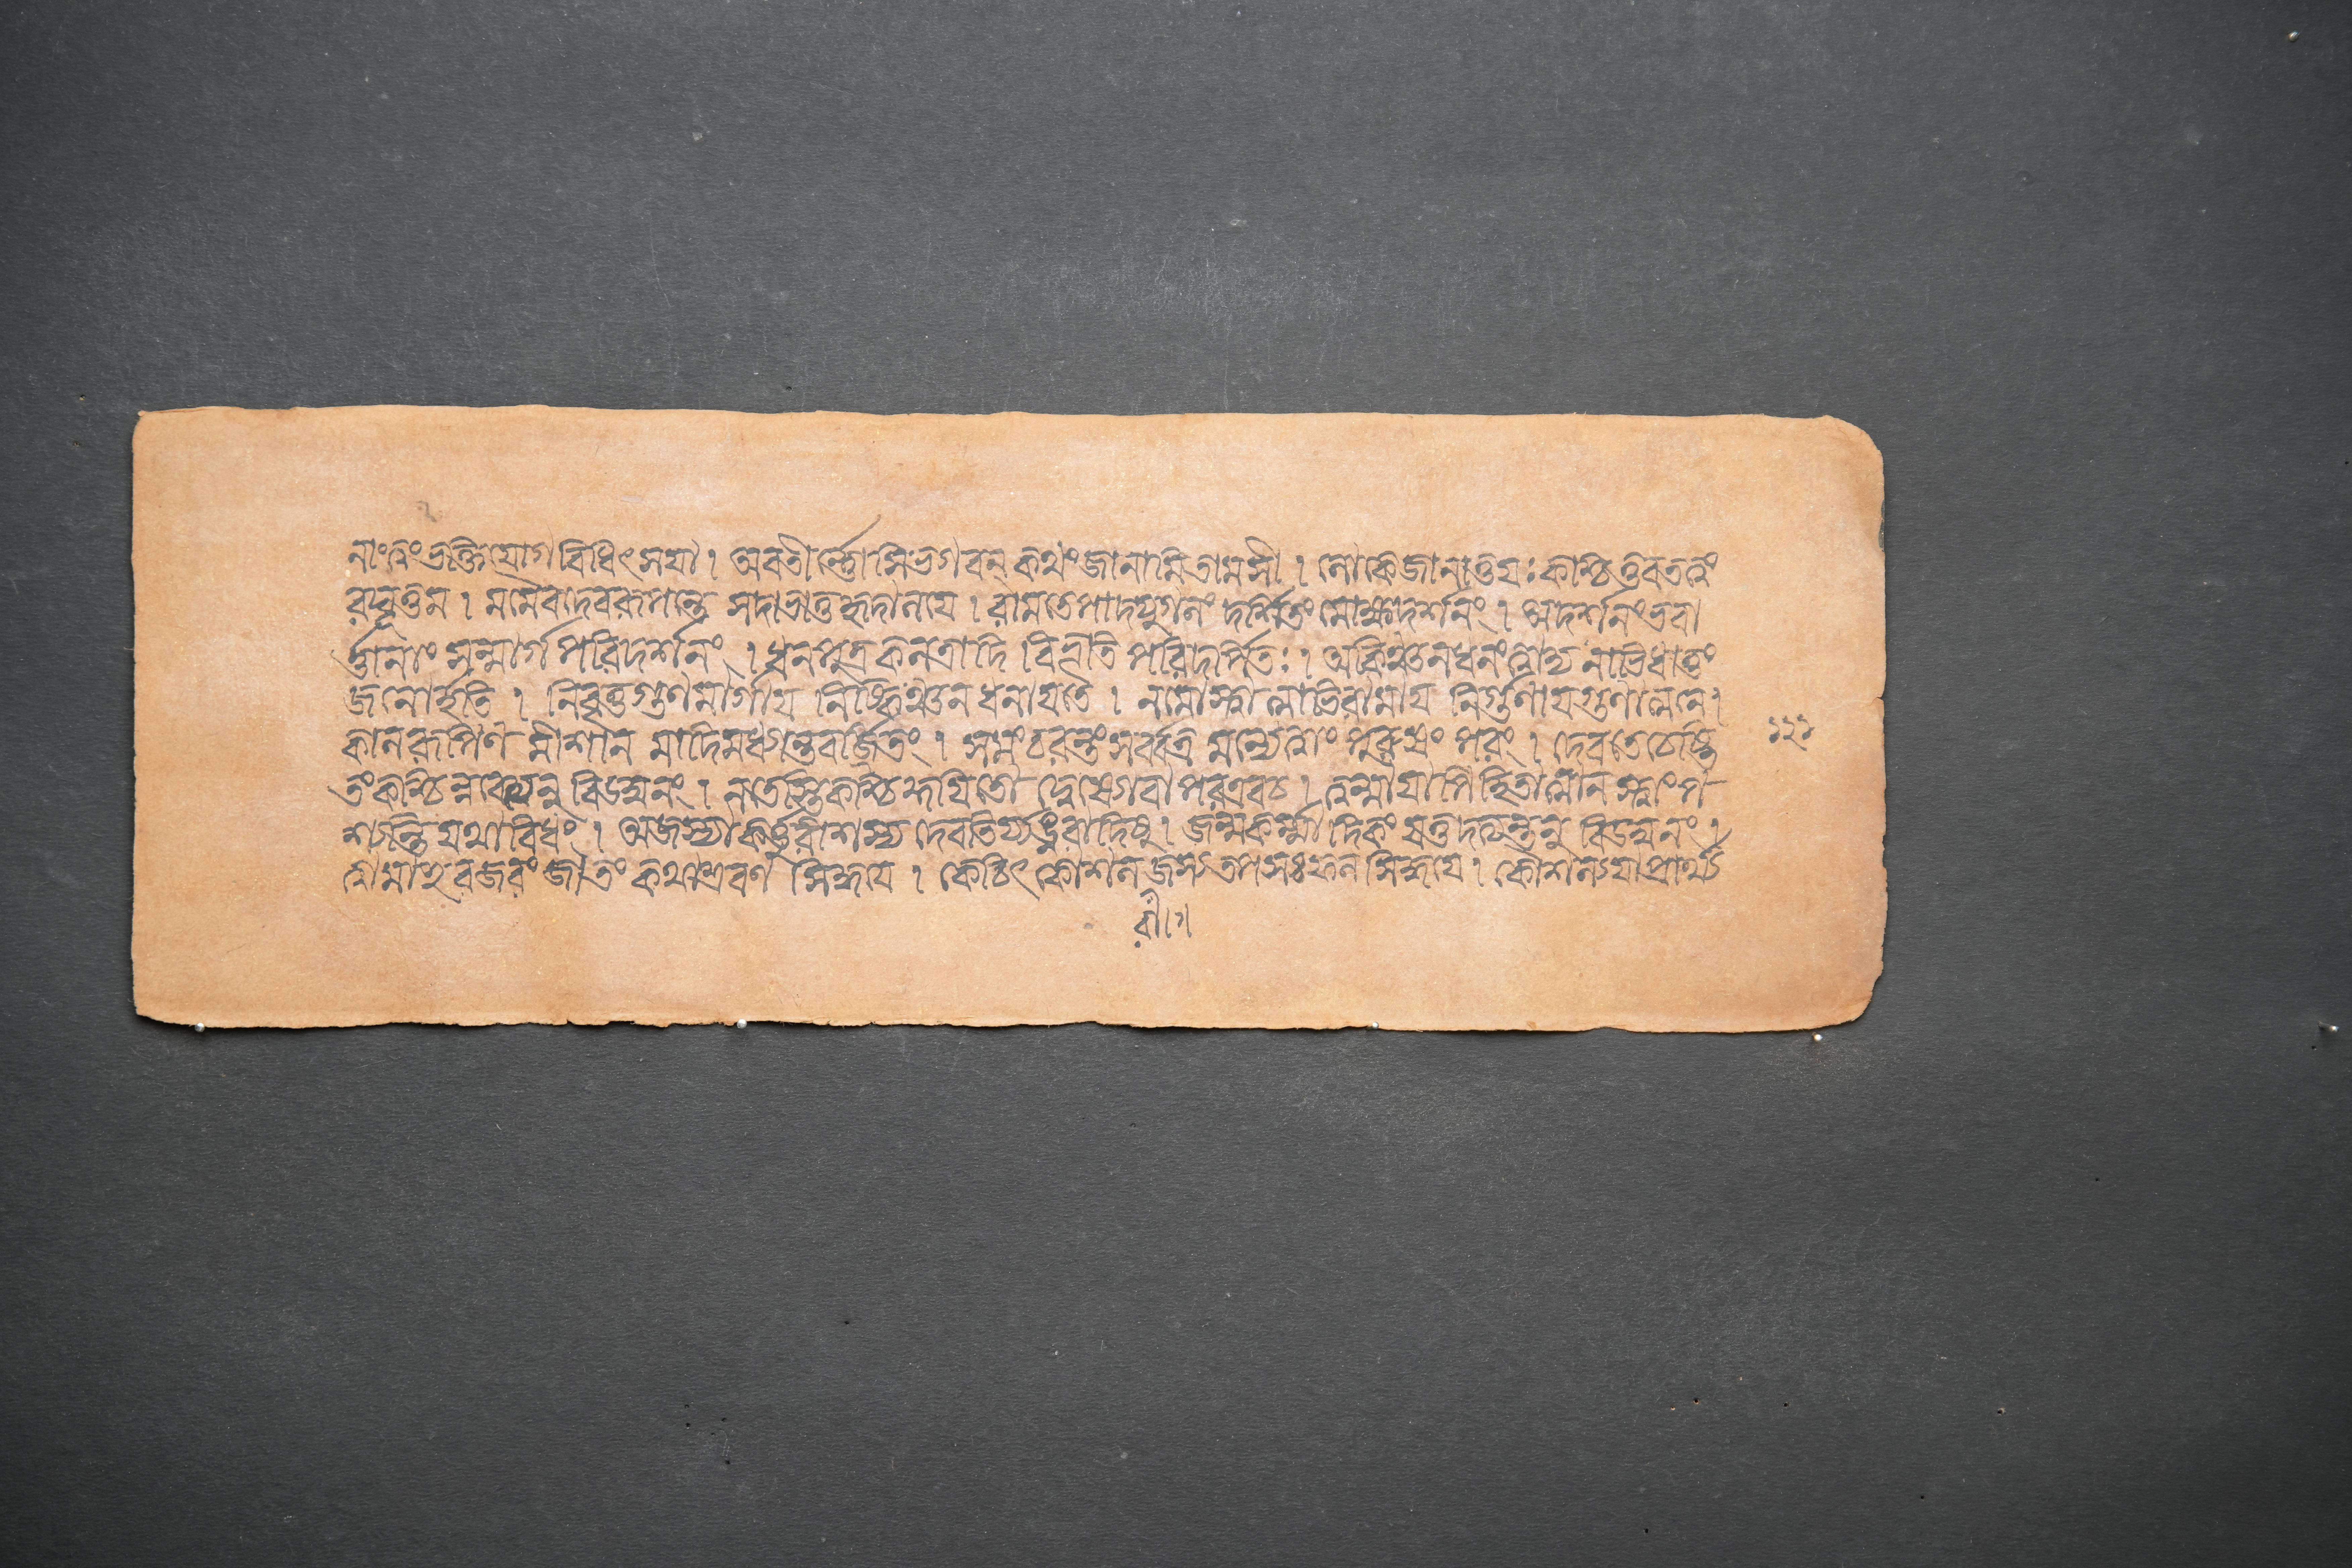 নাংত্বং ভক্তিযোগবিধিৎসযা । অবতীর্ণ্ণোসি ভগবন্ কথংজানামি তামসী । লোকেজানাতু যঃ কশ্চিত্তবতত্বং
রঘূত্তম । মমৈবদেবরূপন্তে সদাভাতু হৃদালযে । রামতে পাদযুগলং দর্শিতং মোক্ষদর্শনং । অদর্শনংভবা
র্ণ্ণানাং সন্মার্গপরিদর্শনং । ধনপুত্রকলত্রাদি বিভূতিপরিদর্পিতঃ । অকিঞ্চনধনংত্বাদ্য নাভিধাতুং
জনোর্হতি । নিবৃত্তগুণমার্গায নিষ্কিঞ্চনধনাযতে । নমোস্বাত্মাভিরামায নির্গুণাযগুণাত্মনে।
কালরূপিণমীশান মাদিমধ্যান্তবর্জিতং । সমংচরন্তংসর্বত্র মন্যেত্বাং পুরুষং পরং । দেবতেচেষ্টি
তংকশ্চিন্নবেদ্যনৃ বিডম্বনং । নতেস্তিকশ্চিদ্দযিতো দ্বেষ্যোবাপরএবচ । ত্বন্মাযাপিহিতাত্মান স্ত্বাংপ
শ্যন্তি যথাবিধং । অজস্যাকর্ত্তুরীশস্য দেবতির্যঙ্নরাদিষু । জন্মকর্ম্মাদিকং যত্তদত্যন্তনৃ বিডম্বনং ।
ত্বামাহুরজরং জাতং কথাশ্রবণ সিদ্ধযে । কেচিৎ কৌশলজস্য তপসঃফল সিদ্ধযে । কৌশল্যযাপ্রার্থ্য